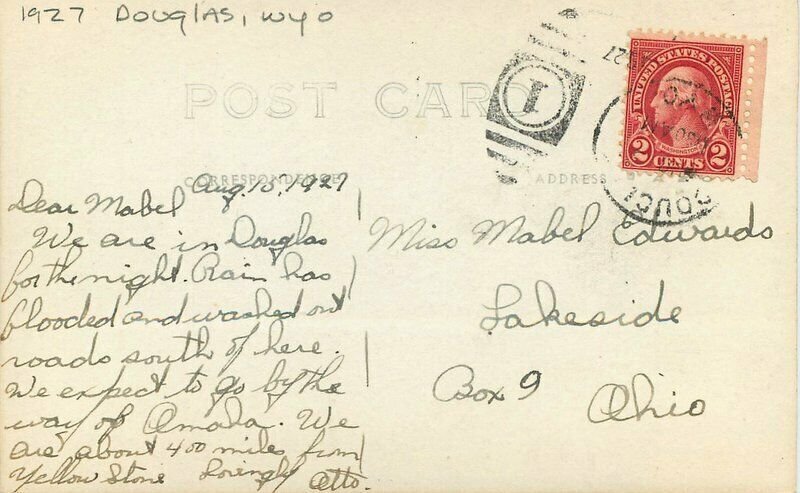 1927 Douglas, Wyo
POST CARD
CORRESPONDENCE
ADDRESS
UNITED STATES POSTAGE
WASHINGTON
2 CENTS 2
1
27
DOUGL
Aug. 15, 1927
Dear Mabel
We are in Douglas
for the night. Rain has
flooded and washed out
roads south of here.
We expect to go by the
way of Omada. We
are about 400 miles from
Yellow Stone Lovingly Otto.
Miss Mabel Edwards
Lakeside
Box 9
Ohio